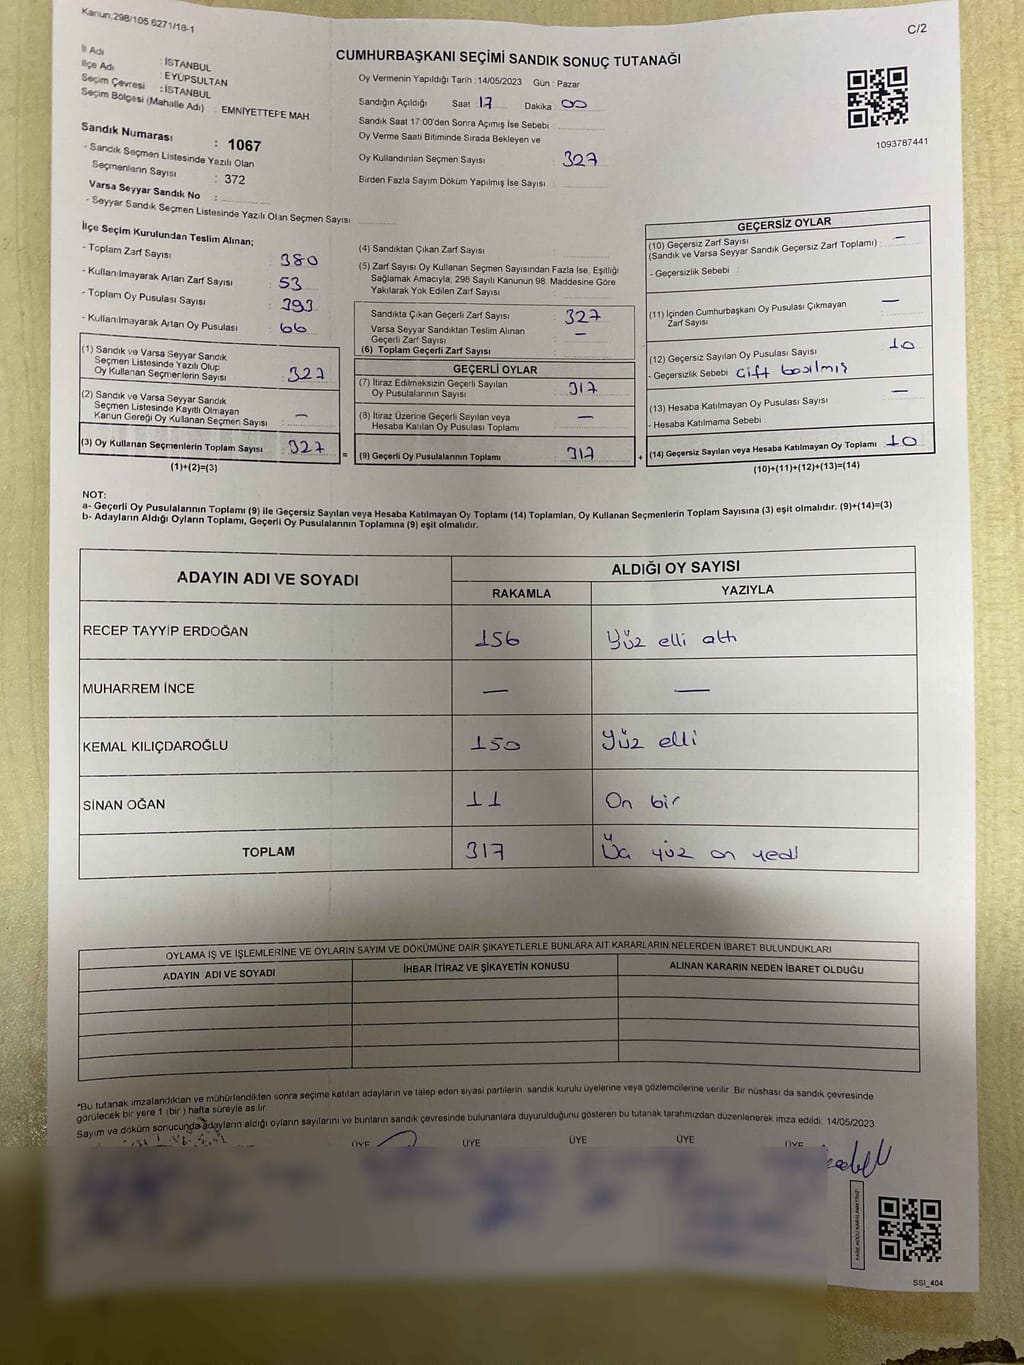 Kanun;298/105 6271/18-1
C/2
CUMHURBAŞKANI SEÇİMİ SANDIK SONUÇ TUTANAĞI
İl Adı : İSTANBUL
İlçe Adı : EYÜPSULTAN
Seçim Çevresi : İSTANBUL
Seçim Bölgesi (Mahalle Adı) : EMNİYETTEPE MAH.
Sandık Numarası : 1067
- Sandık Seçmen Listesinde Yazılı Olan
Seçmenlerin Sayısı : 372
Varsa Seyyar Sandık No :
- Seyyar Sandık Seçmen Listesinde Yazılı Olan Seçmen Sayısı:
Oy Vermenin Yapıldığı Tarih :14/05/2023 Gün : Pazar
Sandığın Açıldığı Saat : 17 Dakika : 00
Sandık Saat 17:00'den Sonra Açımış İse Sebebi :
Oy Verme Saati Bitiminde Sırada Bekleyen ve
Oy Kullandırılan Seçmen Sayısı : 327
Birden Fazla Sayım Döküm Yapılmış İse Sayısı :
1093787441
İlçe Seçim Kurulundan Teslim Alınan;
- Toplam Zarf Sayısı : 380
- Kullanılmayarak Artan Zarf Sayısı : 53
- Toplam Oy Pusulası Sayısı : 393
- Kullanılmayarak Artan Oy Pusulası : 66
(1) Sandık ve Varsa Seyyar Sandık
Seçmen Listesinde Yazılı Olup
Oy Kullanan Seçmenlerin Sayısı : 327
(2) Sandık ve Varsa Seyyar Sandık
Seçmen Listesinde Kayıtlı Olmayan
Kanun Gereği Oy Kullanan Seçmen Sayısı : —
(3) Oy Kullanan Seçmenlerin Toplam Sayısı : 327
(1)+(2)=(3)
=
(4) Sandıktan Çıkan Zarf Sayısı :
(5) Zarf Sayısı Oy Kullanan Seçmen Sayısından Fazla İse, Eşitliği
Sağlamak Amacıyla, 298 Sayılı Kanunun 98. Maddesine Göre
Yakılarak Yok Edilen Zarf Sayısı :
Sandıkta Çıkan Geçerli Zarf Sayısı : 327
Varsa Seyyar Sandıktan Teslim Alınan
Geçerli Zarf Sayısı : —
(6) Toplam Geçerli Zarf Sayısı :
GEÇERLİ OYLAR
(7) İtiraz Edilmeksizin Geçerli Sayılan
Oy Pusulalarının Sayısı : 317
(8) İtiraz Üzerine Geçerli Sayılan veya
Hesaba Katılan Oy Pusulası Toplamı : —
(9) Geçerli Oy Pusulalarının Toplamı : 317
+
GEÇERSİZ OYLAR
(10) Geçersiz Zarf Sayısı
(Sandık ve Varsa Seyyar Sandık Geçersiz Zarf Toplamı) : —
- Geçersizlik Sebebi :
(11) İçinden Cumhurbaşkanı Oy Pusulası Çıkmayan
Zarf Sayısı : —
(12) Geçersiz Sayılan Oy Pusulası Sayısı : 10
- Geçersizlik Sebebi : Çift basılmış
(13) Hesaba Katılmayan Oy Pusulası Sayısı : —
- Hesaba Katılmama Sebebi :
(14) Geçersiz Sayılan veya Hesaba Katılmayan Oy Toplamı : 10
(10)+(11)+(12)+(13)=(14)
NOT:
a- Geçerli Oy Pusulalarının Toplamı (9) ile Geçersiz Sayılan veya Hesaba Katılmayan Oy Toplamı (14) Toplamları, Oy Kullanan Seçmenlerin Toplam Sayısına (3) eşit olmalıdır. (9)+(14)=(3)
b- Adayların Aldığı Oyların Toplamı, Geçerli Oy Pusulalarının Toplamına (9) eşit olmalıdır.
ADAYIN ADI VE SOYADI ALDIĞI OY SAYISI
RAKAMLA YAZIYLA
RECEP TAYYİP ERDOĞAN 156 Yüz elli altı
MUHARREM İNCE — —
KEMAL KILIÇDAROĞLU 150 Yüz elli
SİNAN OĞAN 11 On bir
TOPLAM 317 Üç yüz on yedi
OYLAMA İŞ VE İŞLEMLERİNE VE OYLARIN SAYIM VE DÖKÜMÜNE DAİR ŞİKAYETLERLE BUNLARA AİT KARARLARIN NELERDEN İBARET BULUNDUKLARI
ADAYIN ADI VE SOYADI İHBAR İTİRAZ VE ŞİKAYETİN KONUSU ALINAN KARARIN NEDEN İBARET OLDUĞU
*Bu tutanak imzalandıktan ve mühürlendikten sonra seçime katılan adayların ve talep eden siyasi partilerin sandık kurulu üyelerine veya gözlemcilerine verilir. Bir nüshası da sandık çevresinde
görülecek bir yere 1 (bir ) hafta süreyle asılır.
Sayım ve döküm sonucunda adayların aldığı oyların sayılarını ve bunların sandık çevresinde bulunanlara duyurulduğunu gösteren bu tutanak tarafımızdan düzenlenerek imza edildi. 14/05/2023
ÜYE ÜYE ÜYE ÜYE ÜYE
KARE KODU KARALAMAYINIZ!
SSI_404